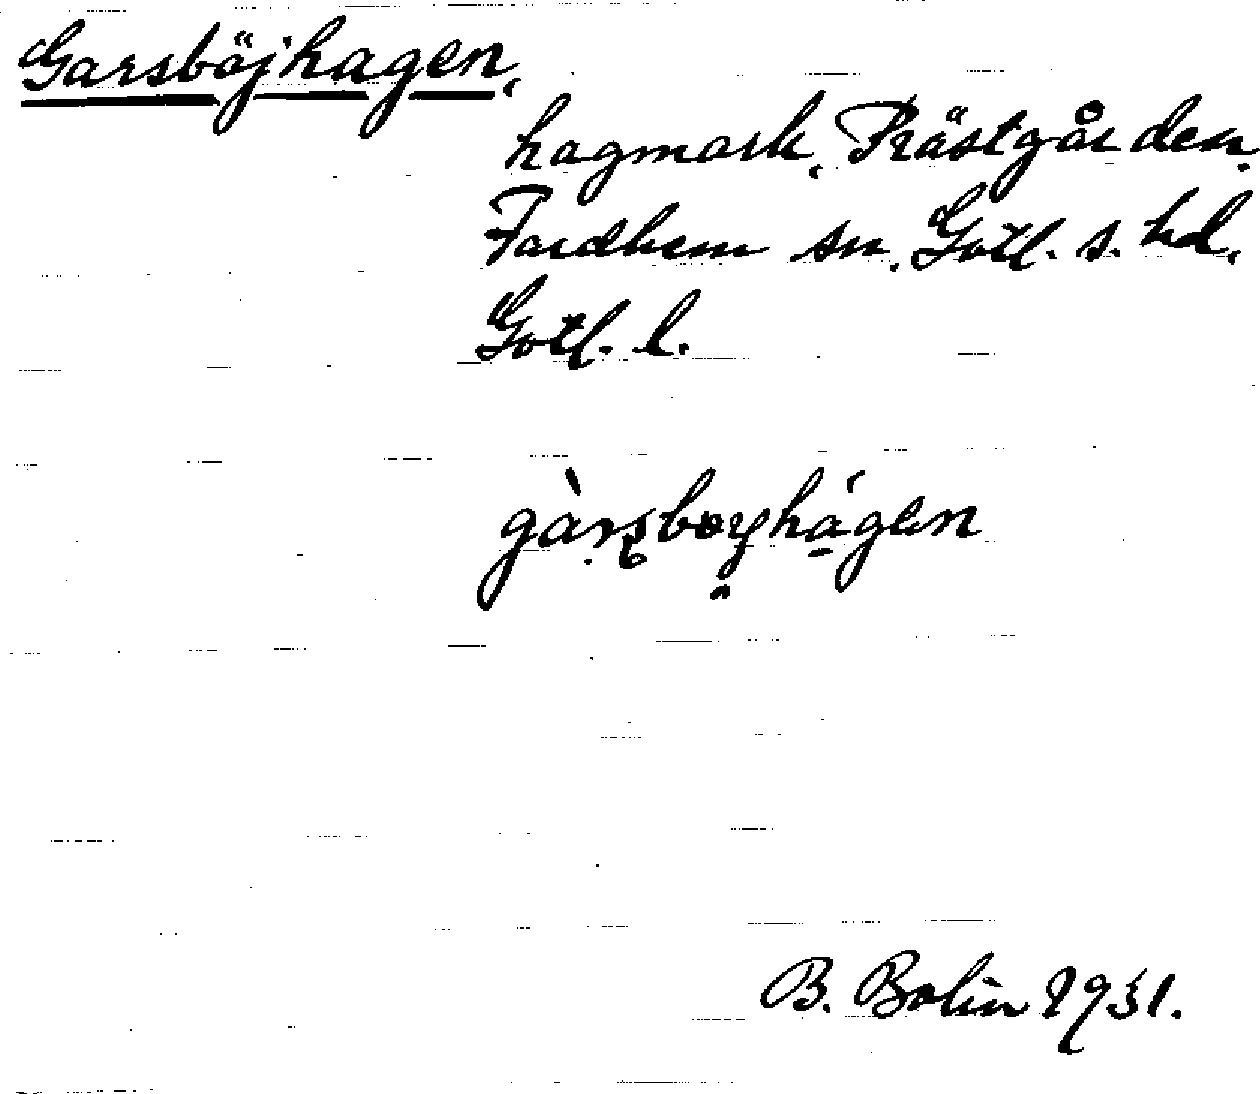 Garsböjhagen,
hagmark, Prästgården,
Fardhem sn, Gotl. s. hd,
Gotl. l.
gàrsboyhágen
B. Bolin 1931.